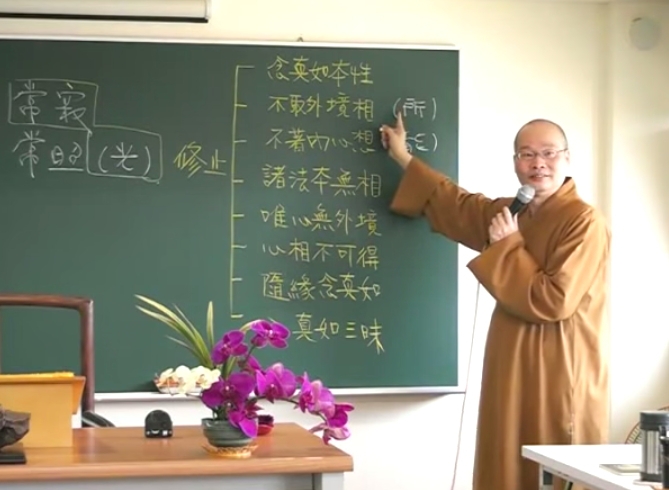 常寂
常照(光)
修止
念真如本性
不取外境相(所)
不著內心想(能)
諸法本無相
唯心無外境
心相不可得
隨緣念真如
真如三昧